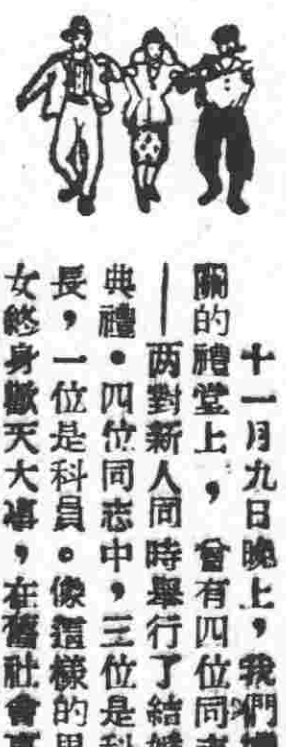 十一月九日晚上，我們
關的禮堂上，會有四位同志
——两對新人同時舉行了結婚
典禮。四位同志中，三位是科
長，一位是科員。像這樣的男
女終身歡天大事，在舊社會